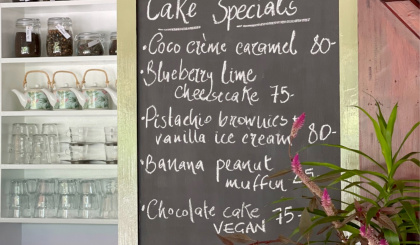 Cake Specials
• Coco crème caramel 80-
• Blueberry lime
cheesecake 75-
• Pistachio brownies +
vanilla ice cream 80-
• Banana peanut
muffin 25
• Chocolate cake 75-
VEGAN